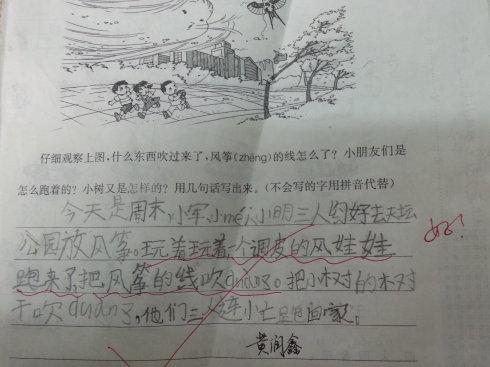 仔细观察上图,什么东西吹过来了,风筝(zhēng)的线怎么了?小朋友们是
怎么跑着的?小树又是怎样的?用几句话写出来。(不会写的字用拼音代替)
今天是周末,小军、小mei、小明三人约好去天坛
公园放风筝。玩着玩着,一个调皮的风娃娃
跑来了,把风筝的线吹duan了。把小树的树
干吹duan了,他们三人连小亡跑回家。
好!
黄润鑫